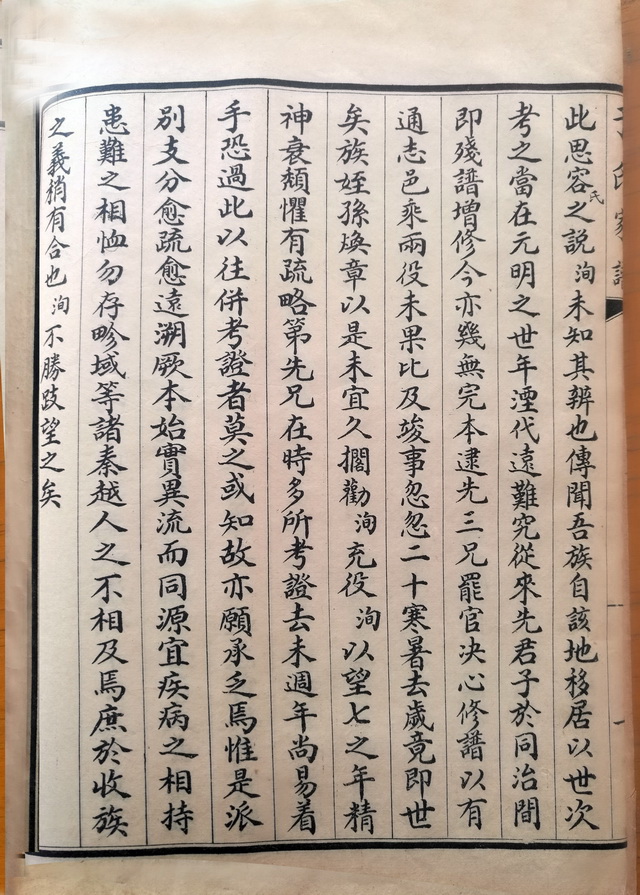 此思容氏之說洵未知其辨也傳聞吾族自該地移居以世次
考之當在元明之世年湮代遠難究從來先君子於同治間
即殘譜增修今亦幾無完本逮先三兄罷官決心修譜以有
通志邑乘兩役未果比及竣事忽忽二十寒暑去歲竟即世
矣族姪孫煥章以是未宜久擱勸洵充役洵以望七之年精
神衰頹懼有疏略第先兄在時多所考證去未週年尚易着
手恐過此以往併考證者莫之或知故亦願承乏焉惟是派
别支分愈疏愈遠溯厥本始實異流而同源宜疾病之相持
患難之相恤勿存畛域等諸秦越人之不相及焉庶於收族
之義稍有合也洵不勝跂望之矣